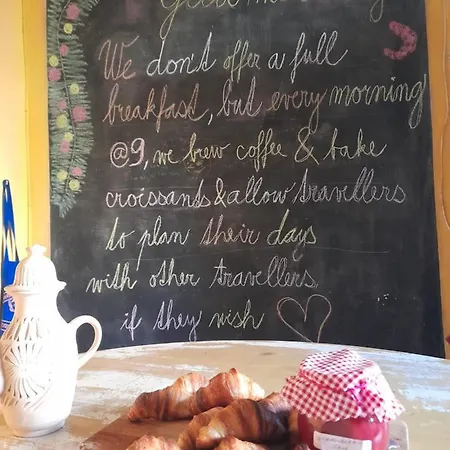 Good morning
We don't offer a full
breakfast, but every morning
@9, we brew coffee & bake
croissants & allow travellers
to plan their days
with other travellers
if they wish